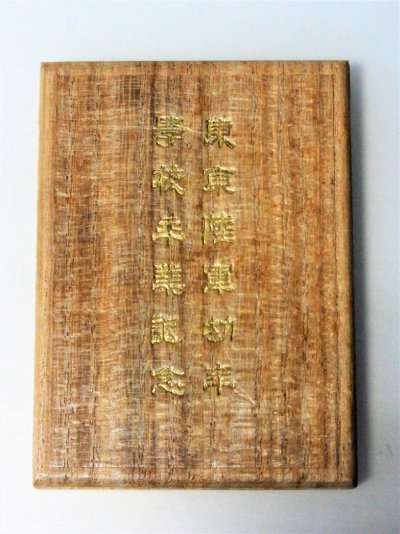 東京陸軍幼年
學校卒業記念